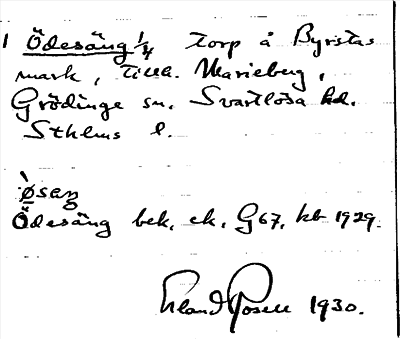 1 Ödesäng 1/4 torp å Byrstas
mark, till. Marieberg,
Grödinge sn. Svartlösa hd.
Sthlms l.
ø̀saŋ
Ödesäng bek. ek. G67, kb 1929.
Erland Rosell 1930.